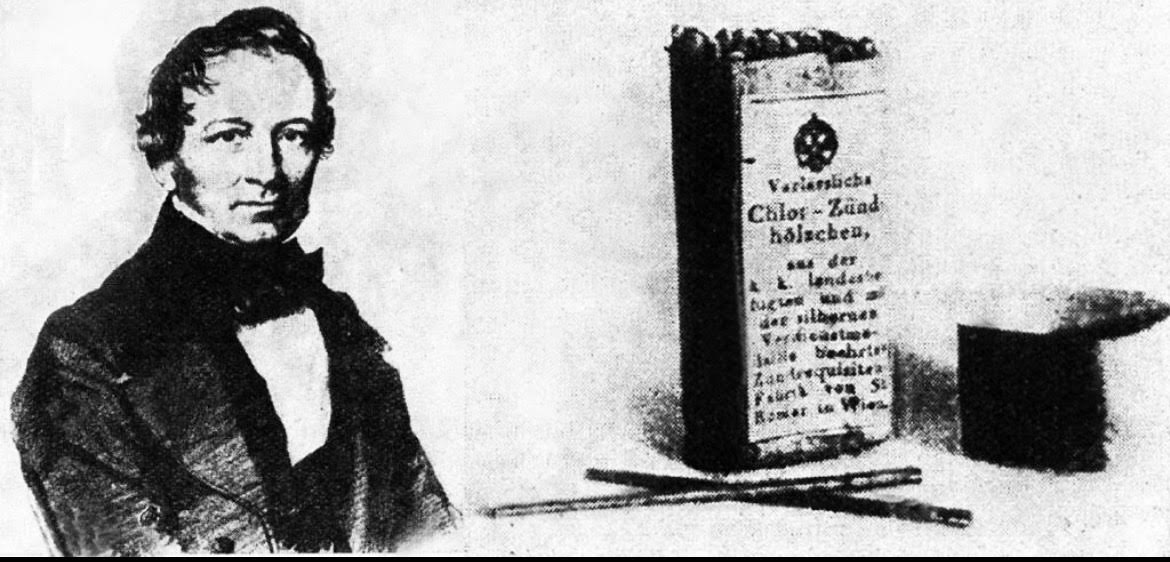 Verlässliche
Chlor-Zünd
hölzchen,
aus der
k. k. landesbe
fugten und m
der silbernen
Verdienstme-
daille beehrten
Zündrequisiten
Fabrik von St
Romer in Wien.